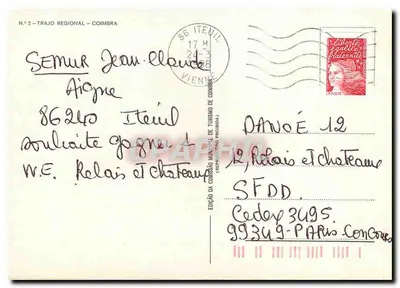 N.º 2 - TRAJO REGIONAL - COIMBRA
86 ITEUIL
17 H
VIENNE
liberté
égalité
fraternité
SEMUR Jean-Claude
Aigne
86240 Iteuil
souhaite gagne 1
W.E. Relais et chateaux
EDIÇÃO DA COMISSÃO MUNICIPAL DE TURISMO DE COIMBRA
(REPRODUÇÃO PROIBIDA)
DANOÉ 12
12, Relais et Chateaux
SFDD.
Cedex 3495.
99349-PARIS-CONCOURS